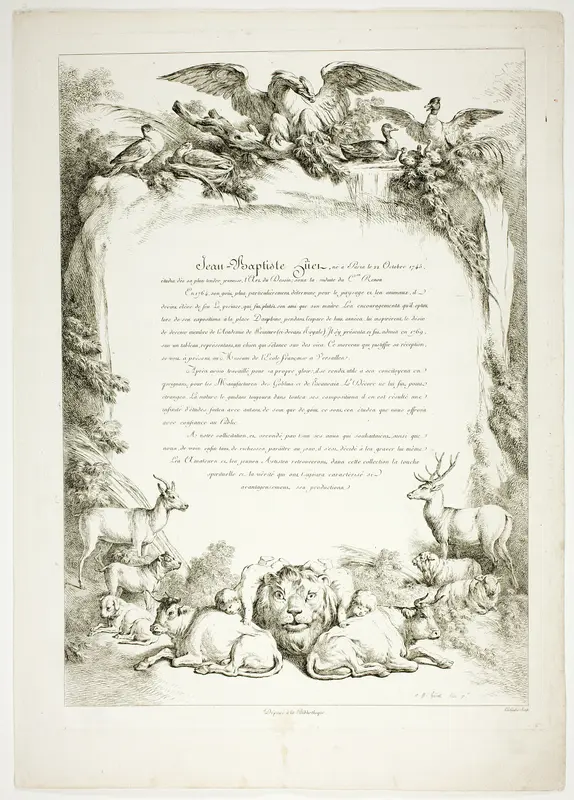 Jean-Baptiste Hüet, né à Paris le 22 Octobre 1745,
étudia dès sa plus tendre jeunesse, l'Art du Dessin, sous la conduite du C.en Renou
En 1764, son goût plus particulièrement déterminé pour le paysage et les animaux, il
devint élève de feu Le prince, qui fut plutôt son ami que son maître. Les encouragements qu'il reçut
lors de son exposition à la place Dauphine pendant l'espace de huit années, lui inspirèrent le désir
de devenir membre de l'Académie de Peinture (ci-devant Royale) Il s'y présenta et fut admis en 1769,
sur un tableau, représentant, un chien qui s'élance sur des oies. Ce morceau qui justifie sa réception,
se voit, à présent au Museum de l'Ecole française à Versailles.
Après avoir travaillé pour sa propre gloire, il se rendit utile à ses concitoyens en
peignant, pour les Manufactures des Gobelins et de Beauvais. Le Décore ne lui fut, point
étranger. La nature le guidant toujours dans toutes ses compositions il en est résulté une
infinité d'études faites avec autant de soin que de goût, ce sont, ces études que nous offrons
avec confiance au Public.
A notre sollicitation et, secondé par tous ses amis qui souhaitent, ainsi que
nous, de voir enfin tant de richesses, paraître au jour, il s'est, décidé à les graver lui même.
Les Amateurs et, les jeunes Artistes retrouveront, dans cette collection la touche
spirituelle et, la vérité qui ont toujours caractérisé si
avantageusement, ses productions.
Déposé à la Bibliothèque